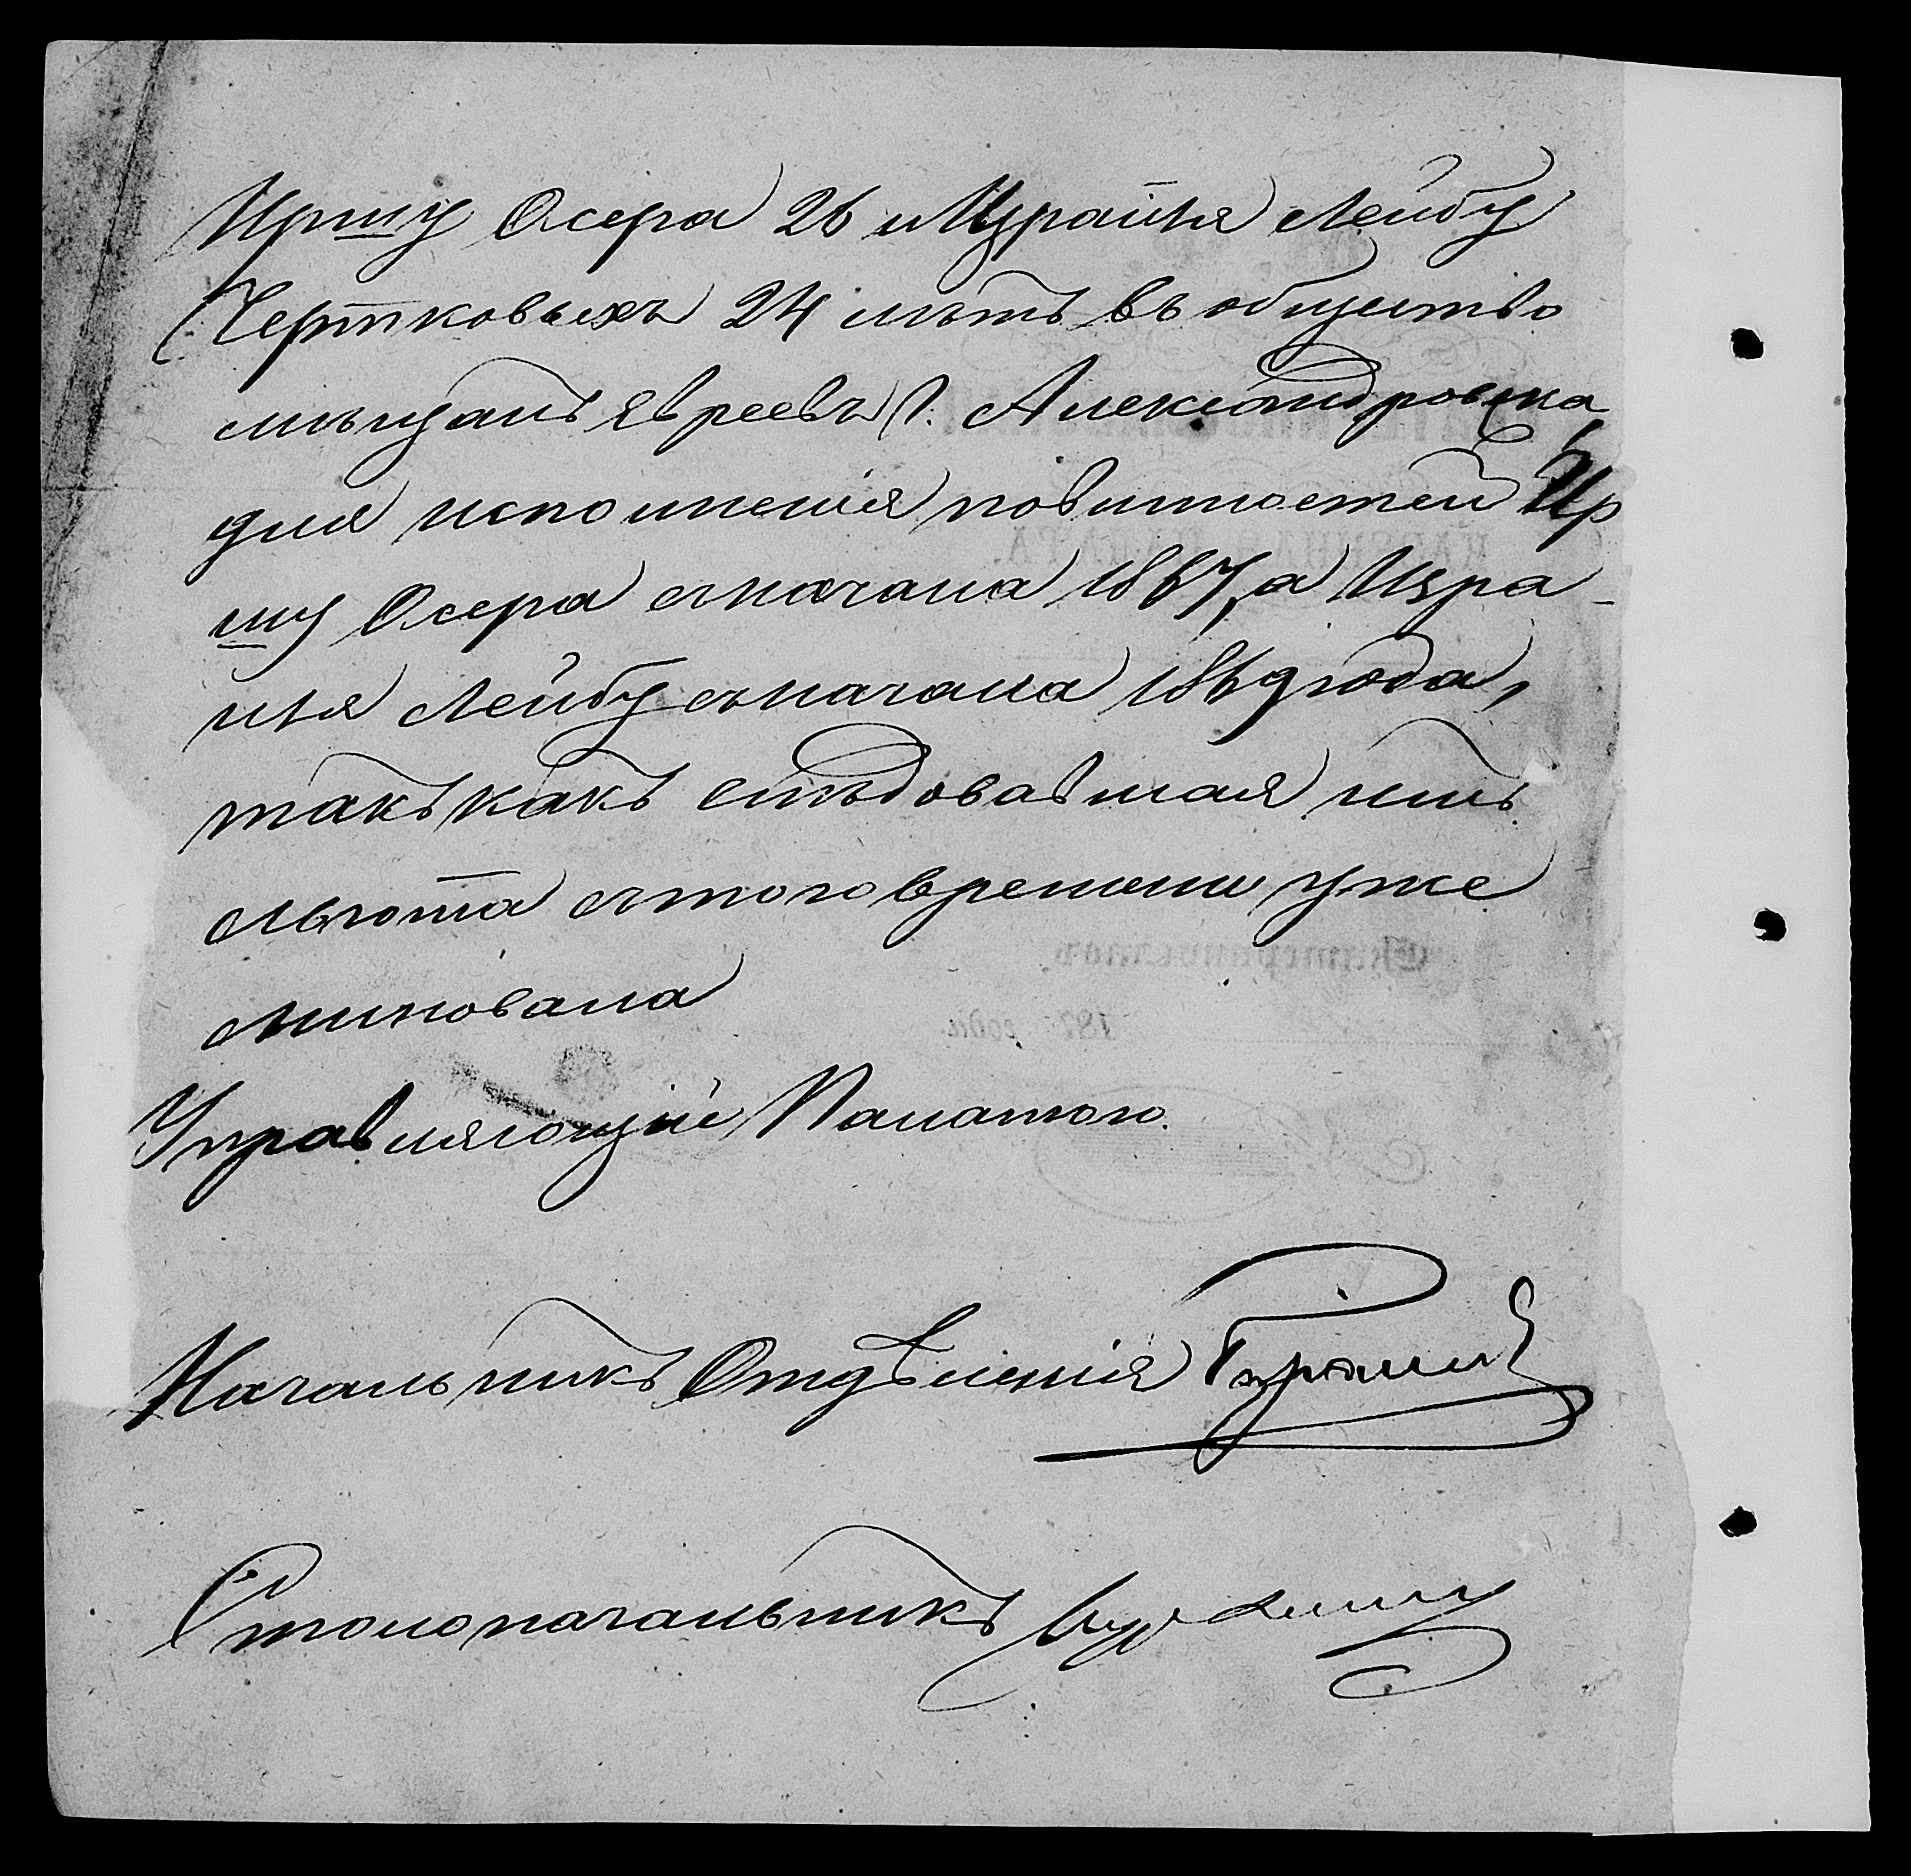 Иршу Осера 26 и Израиля Лейбу
Чертковыхъ 24 лѣтъ въ общество
мѣщанъ Евреевъ г. Александровска
для исполненія повинностей Ир
шу Осера съ начала 1867, а Изра-
иля Лейбу съ начала 1869 года,
такъ какъ слѣдовавшая имъ
льгота съ того времени уже
миновала
Управляющій Палатою.
Начальникъ Отдѣленія
Столоначальникъ